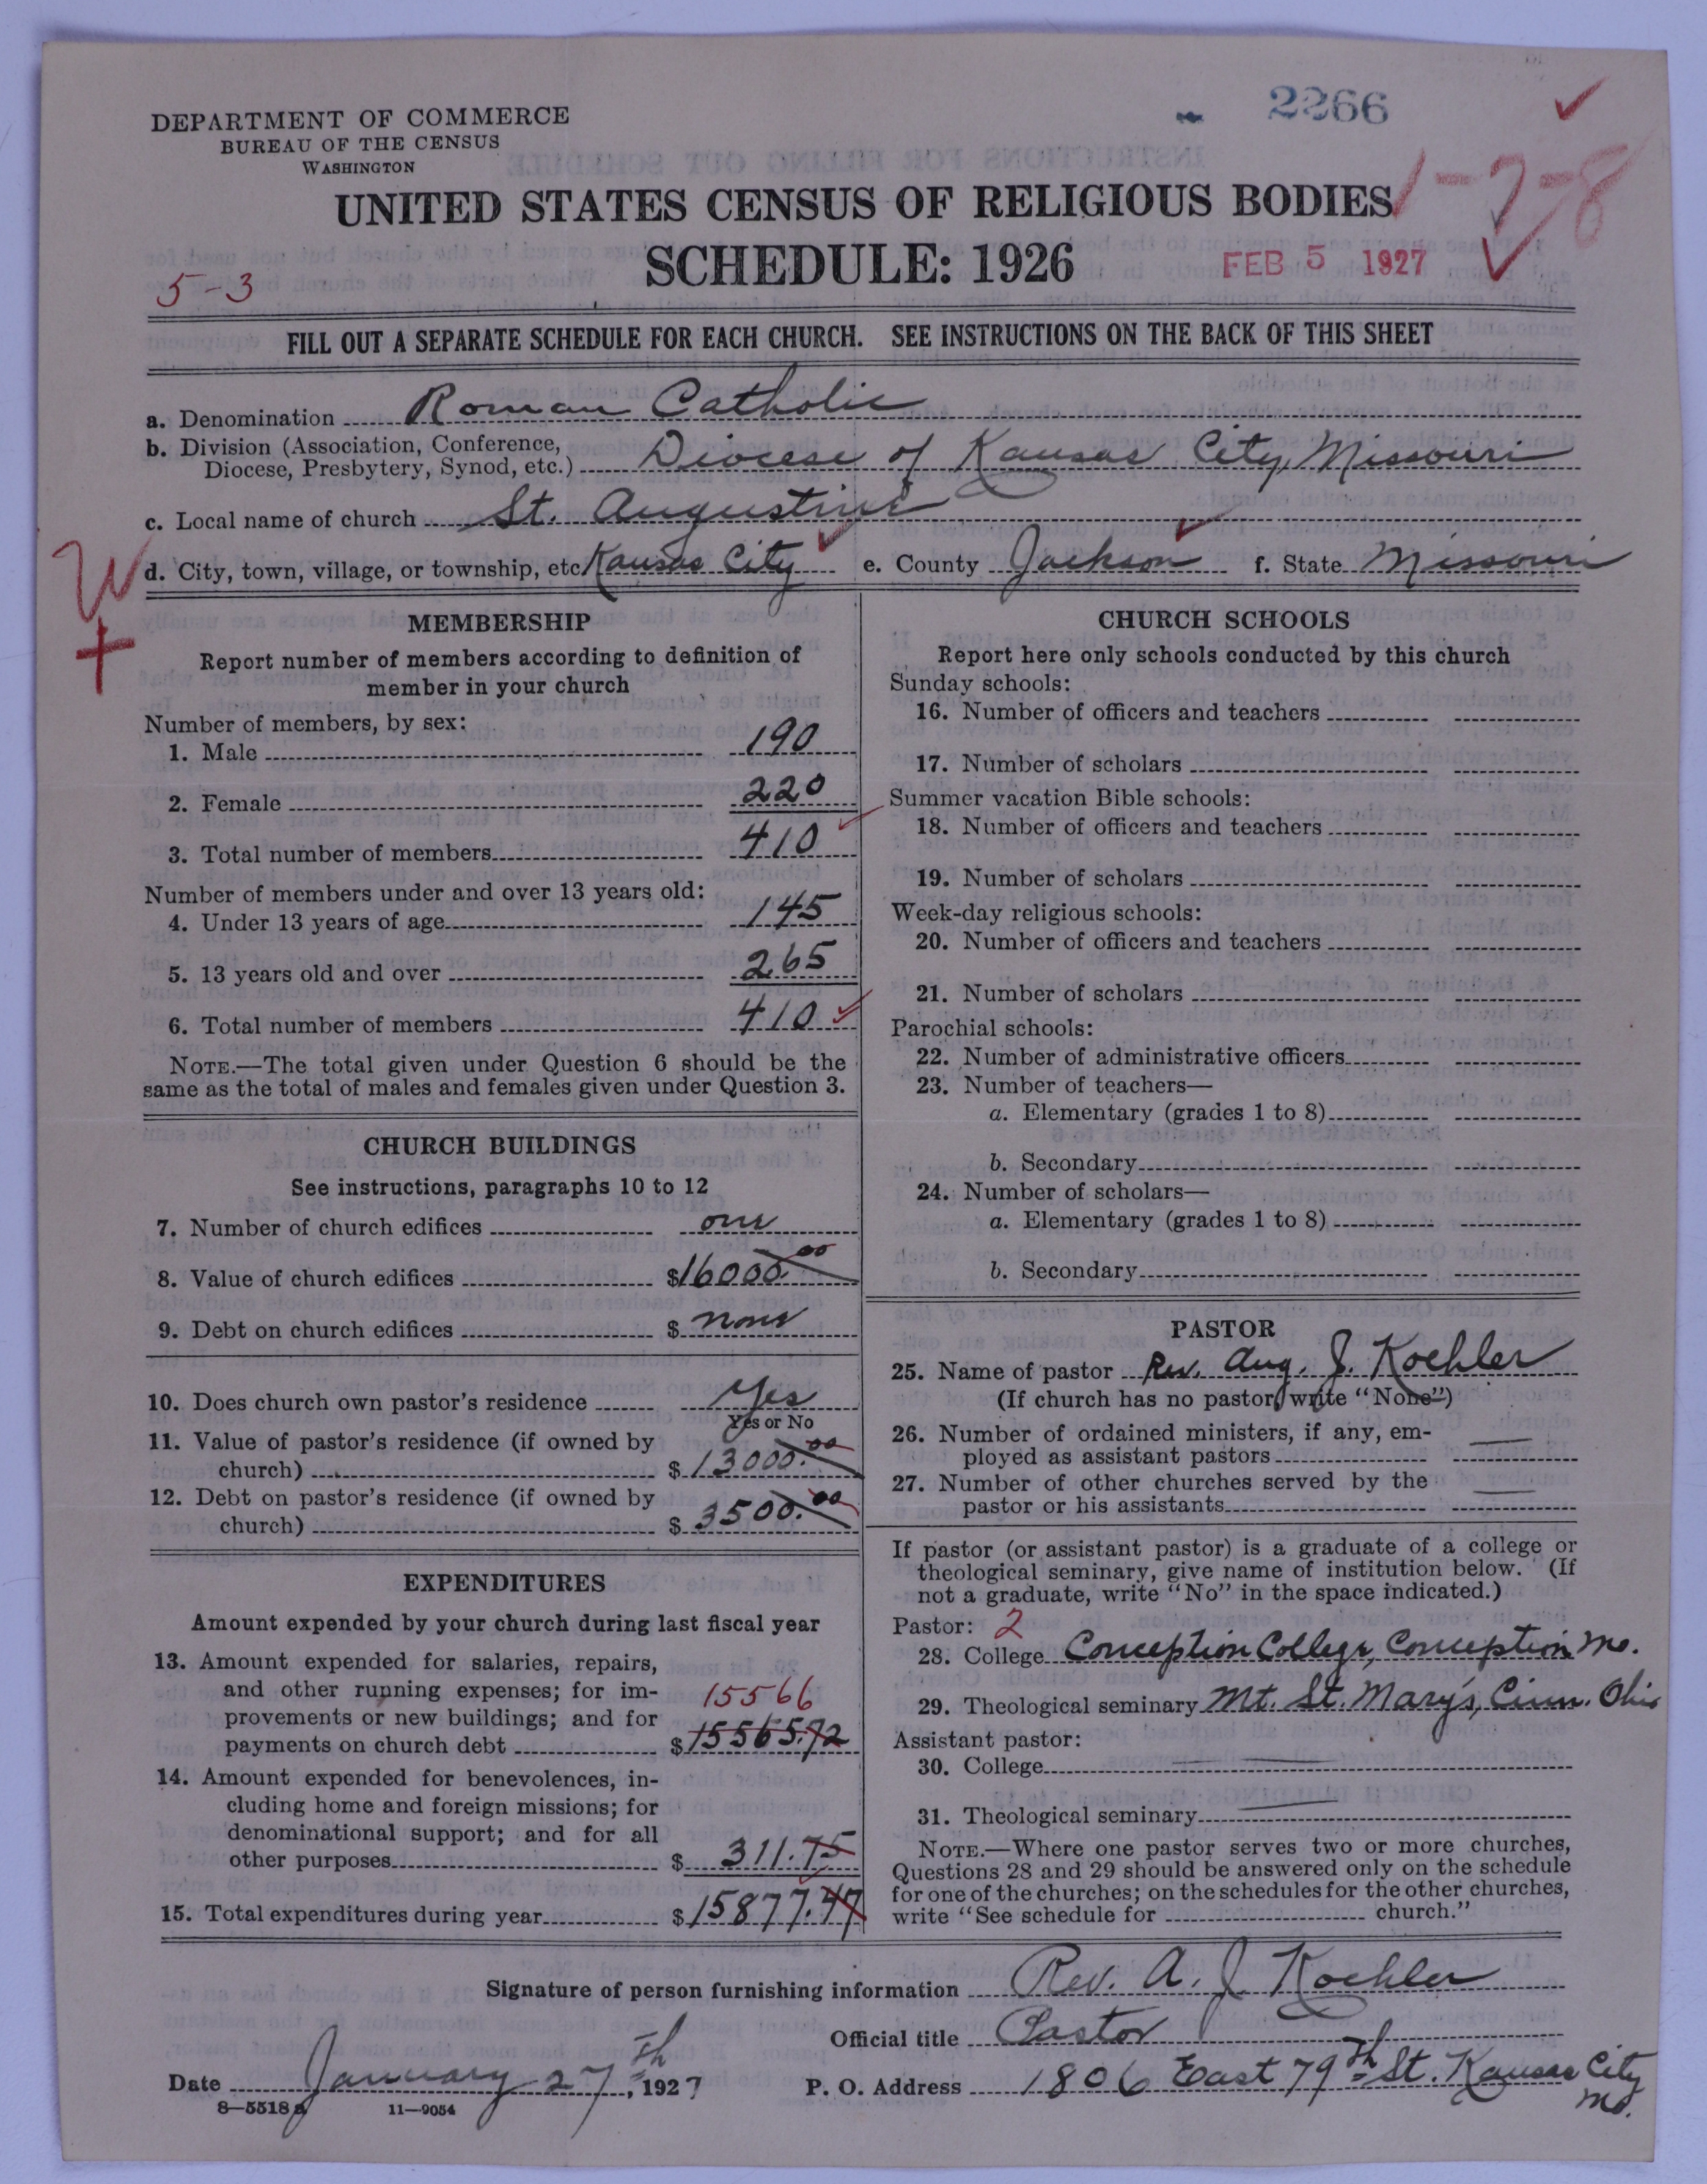 2266
DEPARTMENT OF COMMERCE
BUREAU OF THE CENSUS
WASHINGTON
1-7-8
UNITED STATES CENSUS OF RELIGIOUS BODIES
SCHEDULE: 1926
FEB 5 1927
5-3
FILL OUT A SEPARATE SCHEDULE FOR EACH CHURCH. SEE INSTRUCTIONS ON THE BACK OF THIS SHEET
a. Denomination Roman Catholic
b. Division (Association, Conference,
Diocese, Presbytery, Synod, etc.) Diocese of Kansas City, Missouri
c. Local name of church St. Augustine
W
d. City, town, village, or township, etc. Kansas City e. County Jackson f. State Missouri
MEMBERSHIP
Report number of members according to definition of
member in your church
Number of members, by sex:
1. Male 190
2. Female 220
3. Total number of members 410
Number of members under and over 13 years old:
4. Under 13 years of age 145
5. 13 years old and over 265
6. Total number of members 410
NOTE.—The total given under Question 6 should be the
same as the total of males and females given under Question 3.
CHURCH BUILDINGS
See instructions, paragraphs 10 to 12
7. Number of church edifices one
8. Value of church edifices $16000.00
9. Debt on church edifices $ none
10. Does church own pastor's residence Yes
Yes or No
11. Value of pastor's residence (if owned by
church) $13000.00
12. Debt on pastor's residence (if owned by
church) $3500.00
EXPENDITURES
Amount expended by your church during last fiscal year
13. Amount expended for salaries, repairs,
and other running expenses; for im-
15566
provements or new buildings; and for
payments on church debt $15565.72
14. Amount expended for benevolences, in-
cluding home and foreign missions; for
denominational support; and for all
other purposes $311.75
15. Total expenditures during year $15877.47
CHURCH SCHOOLS
Report here only schools conducted by this church
Sunday schools:
16. Number of officers and teachers
17. Number of scholars
Summer vacation Bible schools:
18. Number of officers and teachers
19. Number of scholars
Week-day religious schools:
20. Number of officers and teachers
21. Number of scholars
Parochial schools:
22. Number of administrative officers
23. Number of teachers—
a. Elementary (grades 1 to 8)
b. Secondary
24. Number of scholars—
a. Elementary (grades 1 to 8)
b. Secondary
PASTOR
25. Name of pastor Rev. Aug. J. Koehler
(If church has no pastor, write "None")
26. Number of ordained ministers, if any, em-
ployed as assistant pastors
27. Number of other churches served by the
pastor or his assistants
If pastor (or assistant pastor) is a graduate of a college or
theological seminary, give name of institution below. (If
not a graduate, write "No" in the space indicated.)
Pastor: 2
28. College Conception College, Conception Mo.
29. Theological seminary Mt. St. Mary's, Cinn. Ohio
Assistant pastor:
30. College
31. Theological seminary
NOTE.—Where one pastor serves two or more churches,
Questions 28 and 29 should be answered only on the schedule
for one of the churches; on the schedules for the other churches,
write "See schedule for church."
Signature of person furnishing information Rev. A. J Koehler
Official title Pastor
Date January 27th, 1927 P. O. Address 1806 East 79th St. Kansas City
Mo.
8—5518 a 11—9054